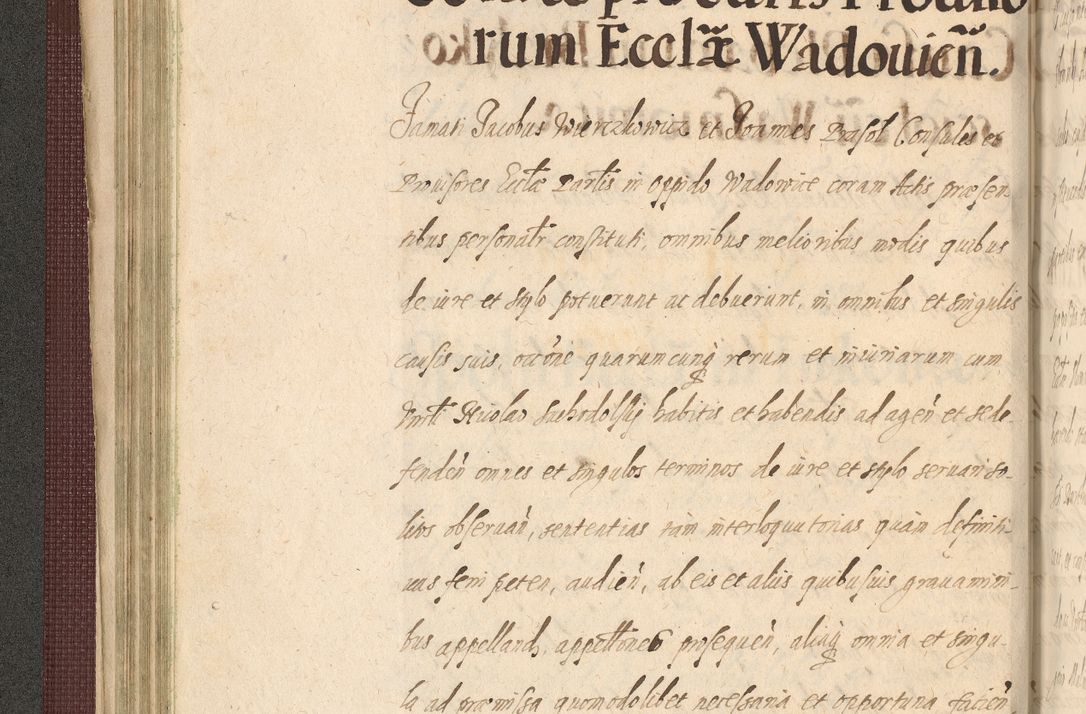 rum Ecclæ Wadouien̄.
Famati Jacobus Wierczkowicz et Joannes Prasoł Consules et
Prouisores Ecclæ Parlis in oppido Wadowice coram Actis præsen-
tibus personalr constituti, omnibus melioribus modis quibus
de iure et stylo potuerunt ac debuerunt, in omnibus et singulis
causis suis, occōne quarumcunq rerum et iniuriarum cum
Nicolao habitis et habendis ad agen̄ et sede-
fenden̄ omnes et singulos terminos de iure et stylo seruari so-
litos obseruan̄, sententias tam interloquutorias quàm definiti-
uas ferri peten, audien̄, ab eis et aliis quibusuis grauamini-
bus appelland, appellōnes prosequen̄, aliaq omnia et singu-
la ad præmissa quomodolibet necessaria et opportuna facien̄